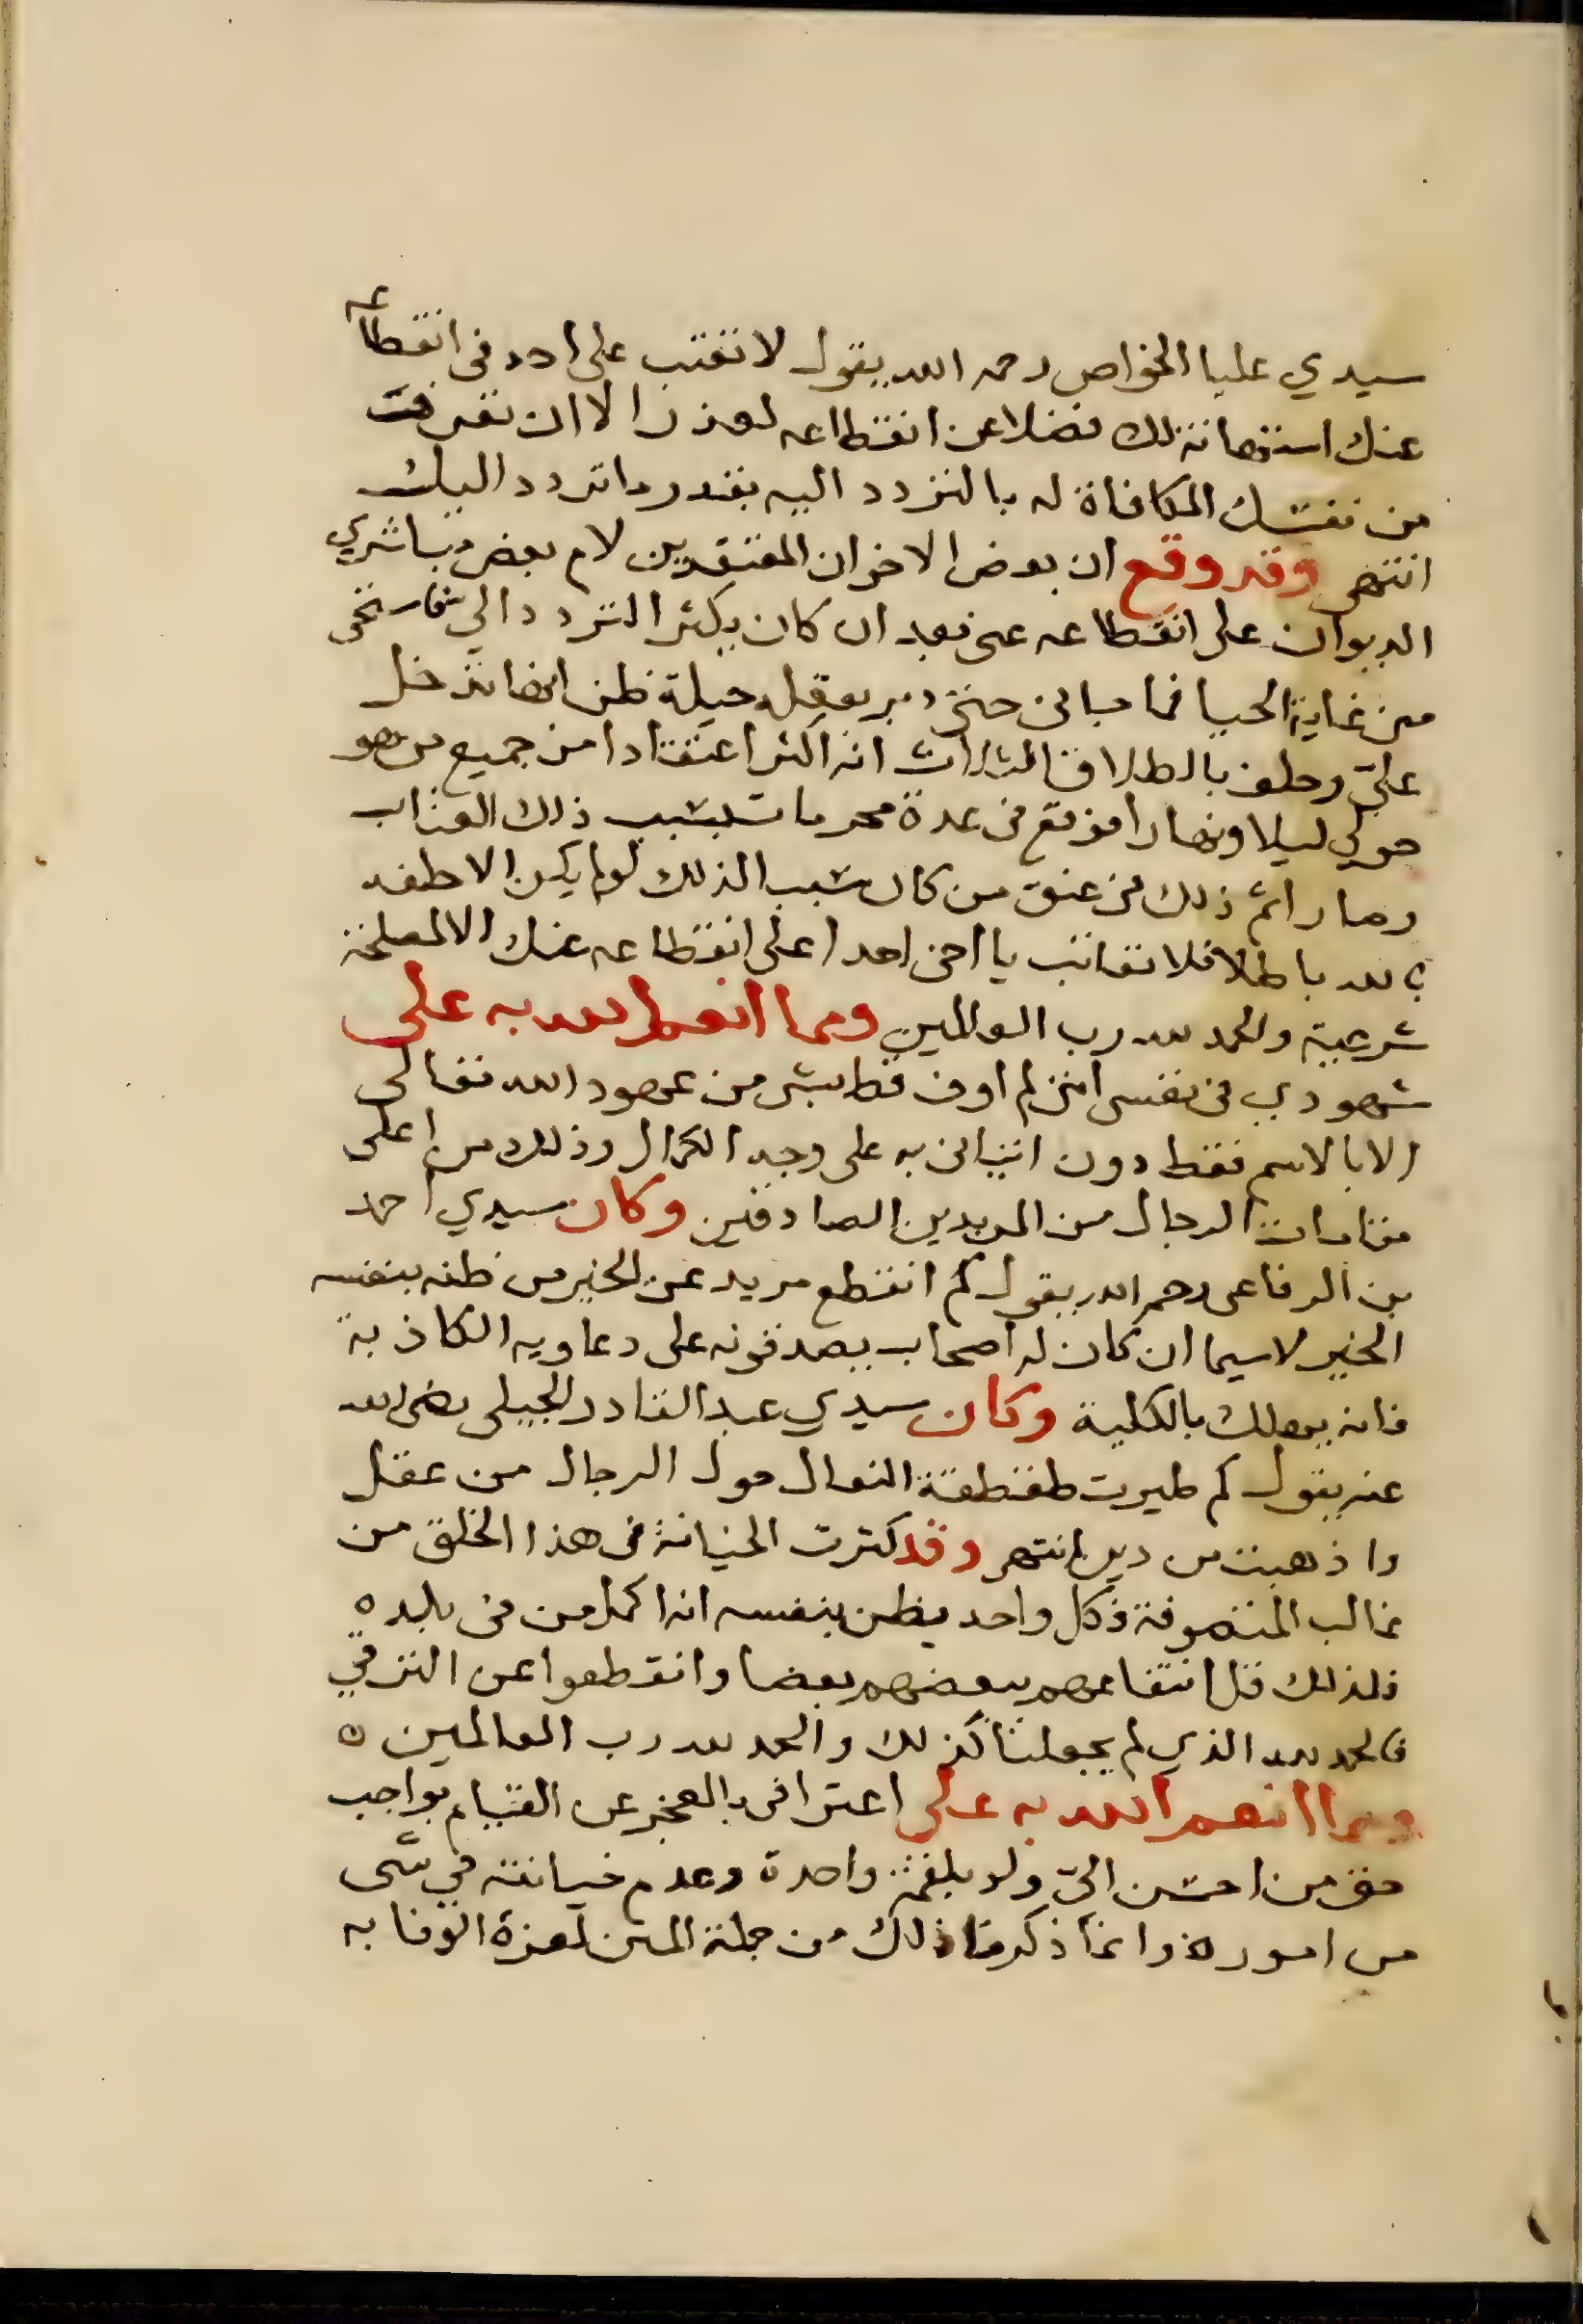 سيدي عليا الخواص رحمه الله يقول لا تعتب على احد في انقطاعه
عنك استهانة لك فضلا عن انقطاعه لعذر الا ان تعرفت
من نفسك المكافاة له بالتردد اليه بقدر ما تردد اليك
انتهى وقد وقع ان بعض الاخوان المعتقدين لام بعض مباشري
الديوان على انقطاعه عنى بعد ان كان يكثر التردد الي فاستحى
من غاية الحيا فما جانى حتى دبر بعقله حيلة ظن انها تدخل
عليّ وحلف بالطلاق الثلاث انه اكثر اعتقادا من جميع من هو
حولي ليلا ونهارا فوقع في عدة محرمات بسبب ذلك العتاب
وصار اثم ذلك في عنق من كان سببا لذلك لو لم يكن الا حلفه
بالله باطلا فلا تعاتب يا اخى احدا على انقطاعه عنك الا لمصلحة
شرعية والحمد لله رب العالمين ومما انعم الله به على
شهودي في نفسى اننى لم اوف قط بشى من عهود الله تعالى
الا بالاسم فقط دون اتيانى به على وجه الكمال وذلك من اعلى
مقامات الرجال من المريدين الصادقين وكان سيدي احمد
بن الرفاعى رحمه الله يقول كم انقطع مريد عن الخير من ظنه بنفسه
الخير لاسيما ان كان له اصحاب يصدقونه على دعاويه الكاذبة
فانه يهلك بالكلية وكان سيدي عبد القادر الجيلى رضى الله
عنه يقول كم طيرت طقطقة النعال حول الرجال من عقل
واذهبت من دين انتهى وقد كثرت الخيانة فى هذا الخلق من
غالب المتصوفة فكل واحد يظن بنفسه انه اكمل من في بلده
فلذلك قل انتفاعهم ببعضهم بعضا وانقطعوا عن الترقي
فالحمد لله الذي لم يجعلنا كذلك والحمد لله رب العالمين ه
ومما انعم الله به على اعترافى بالعجز عن القيام بواجب
حق من احسن اليّ ولو بلقمة واحدة وعدم خيانته في شى
من اموره وانما ذكرنا ذلك من جملة المنن لعزة الوفا به